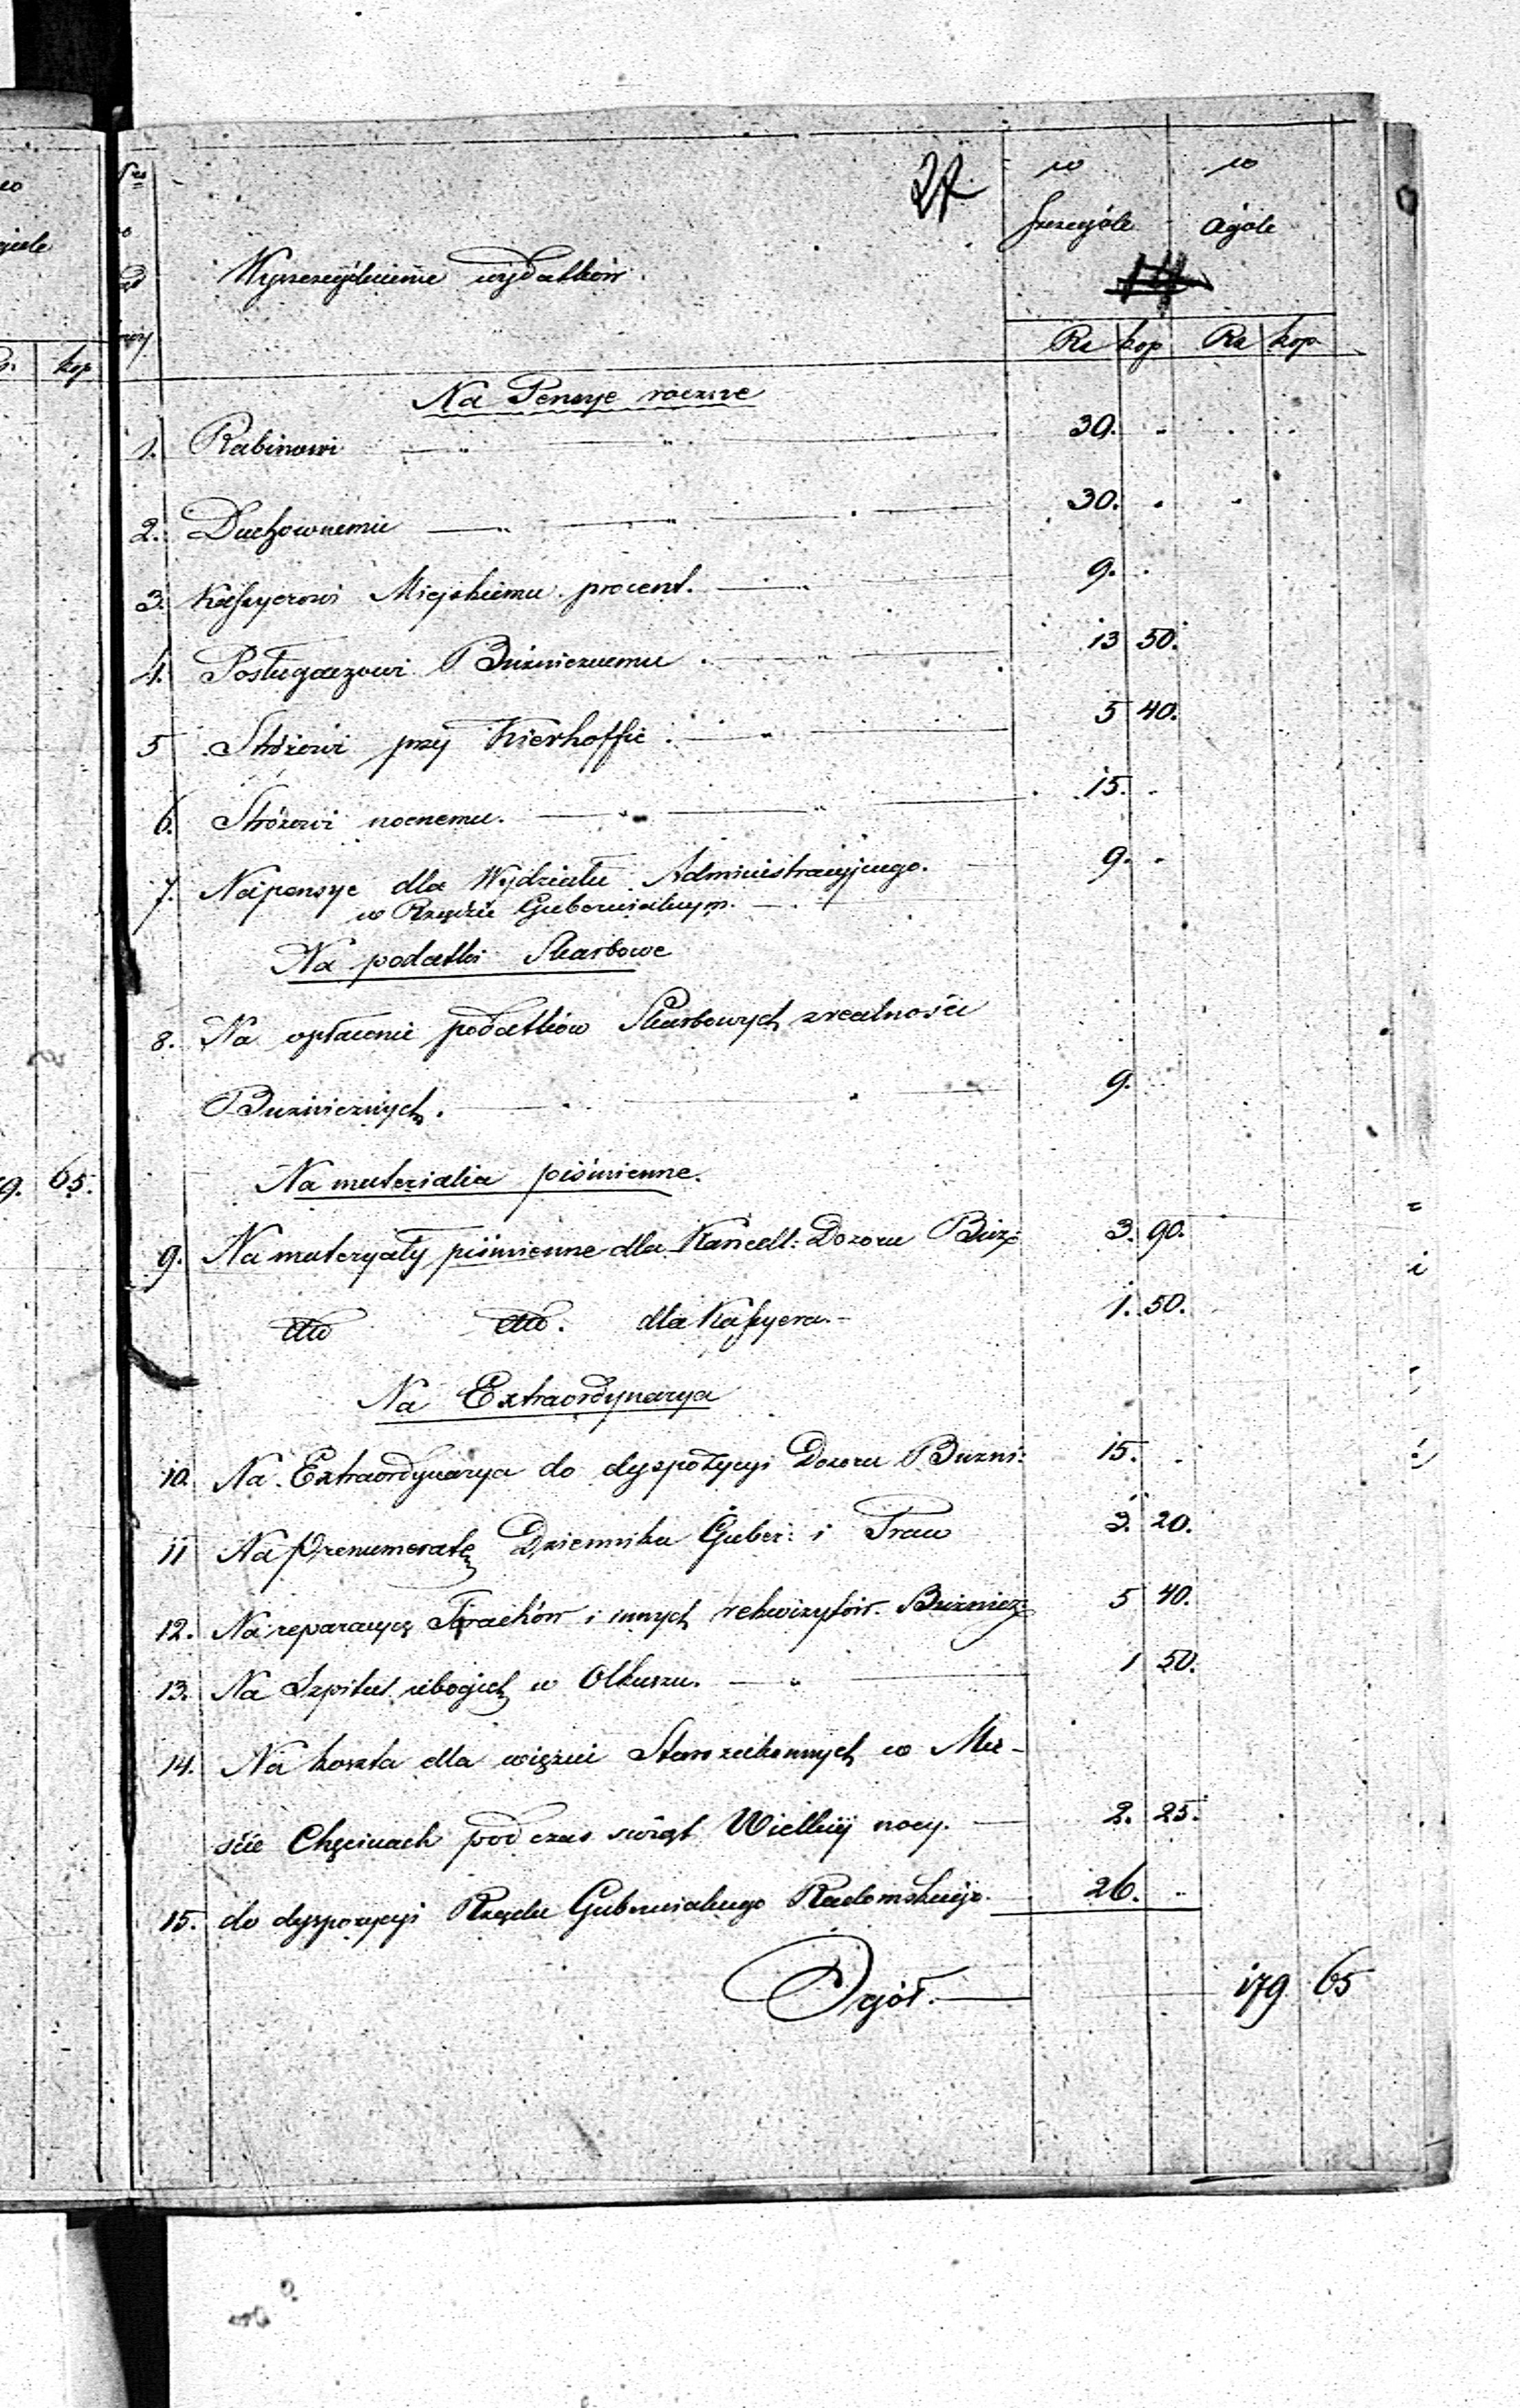 27
w w
szczególe ogóle
14
Wyszczególnienie wydatków
Rs kop Rs kop
Na Pensye roczne
1. Rabinowi 30.
2. Duchownemu 30.
3. Kassyerowi Miejskiemu procent. 9.
4. Posługaczowi Bużnicznemu 13 50.
5 Stróżowi przy Kierhoffie 5 40.
6. Stróżowi nocnemu. 15.
7. Na pensye dla Wydziału Administracyjnego. 9.
w Rządzie Gubernialnym.
Na podatki Skarbowe
8. Na opłacenie podatków Skarbowych z realności
Bużnicznych. 9.
Na materialia piśmienne.
9. Na materyały piśmienne dla Kancell: Dozoru Buż: 3. 90.
dtto dtto. dla Kassyera. 1. 50.
Na Extraordynarya
10. Na Extraordynarya do dyspozycyi Dozoru Buzni: 15.
11 Na Prenumeratę Dziennika Guber: i Praw 3. 20.
12. Na reparacyę i innych rekwizytów Bużnicz: 5 40.
13. Na Szpital ubogich w Olkuszu. 1 50.
14. Na koszta dla więźni Starozakonnych w Mie-
ście Chęcinach podczas świąt Wielkiej nocy. 2. 25.
15. do dyspozycyi Rządu Gubernialnego Radomskiego. 26.
Ogół. 179 65
kop
65.